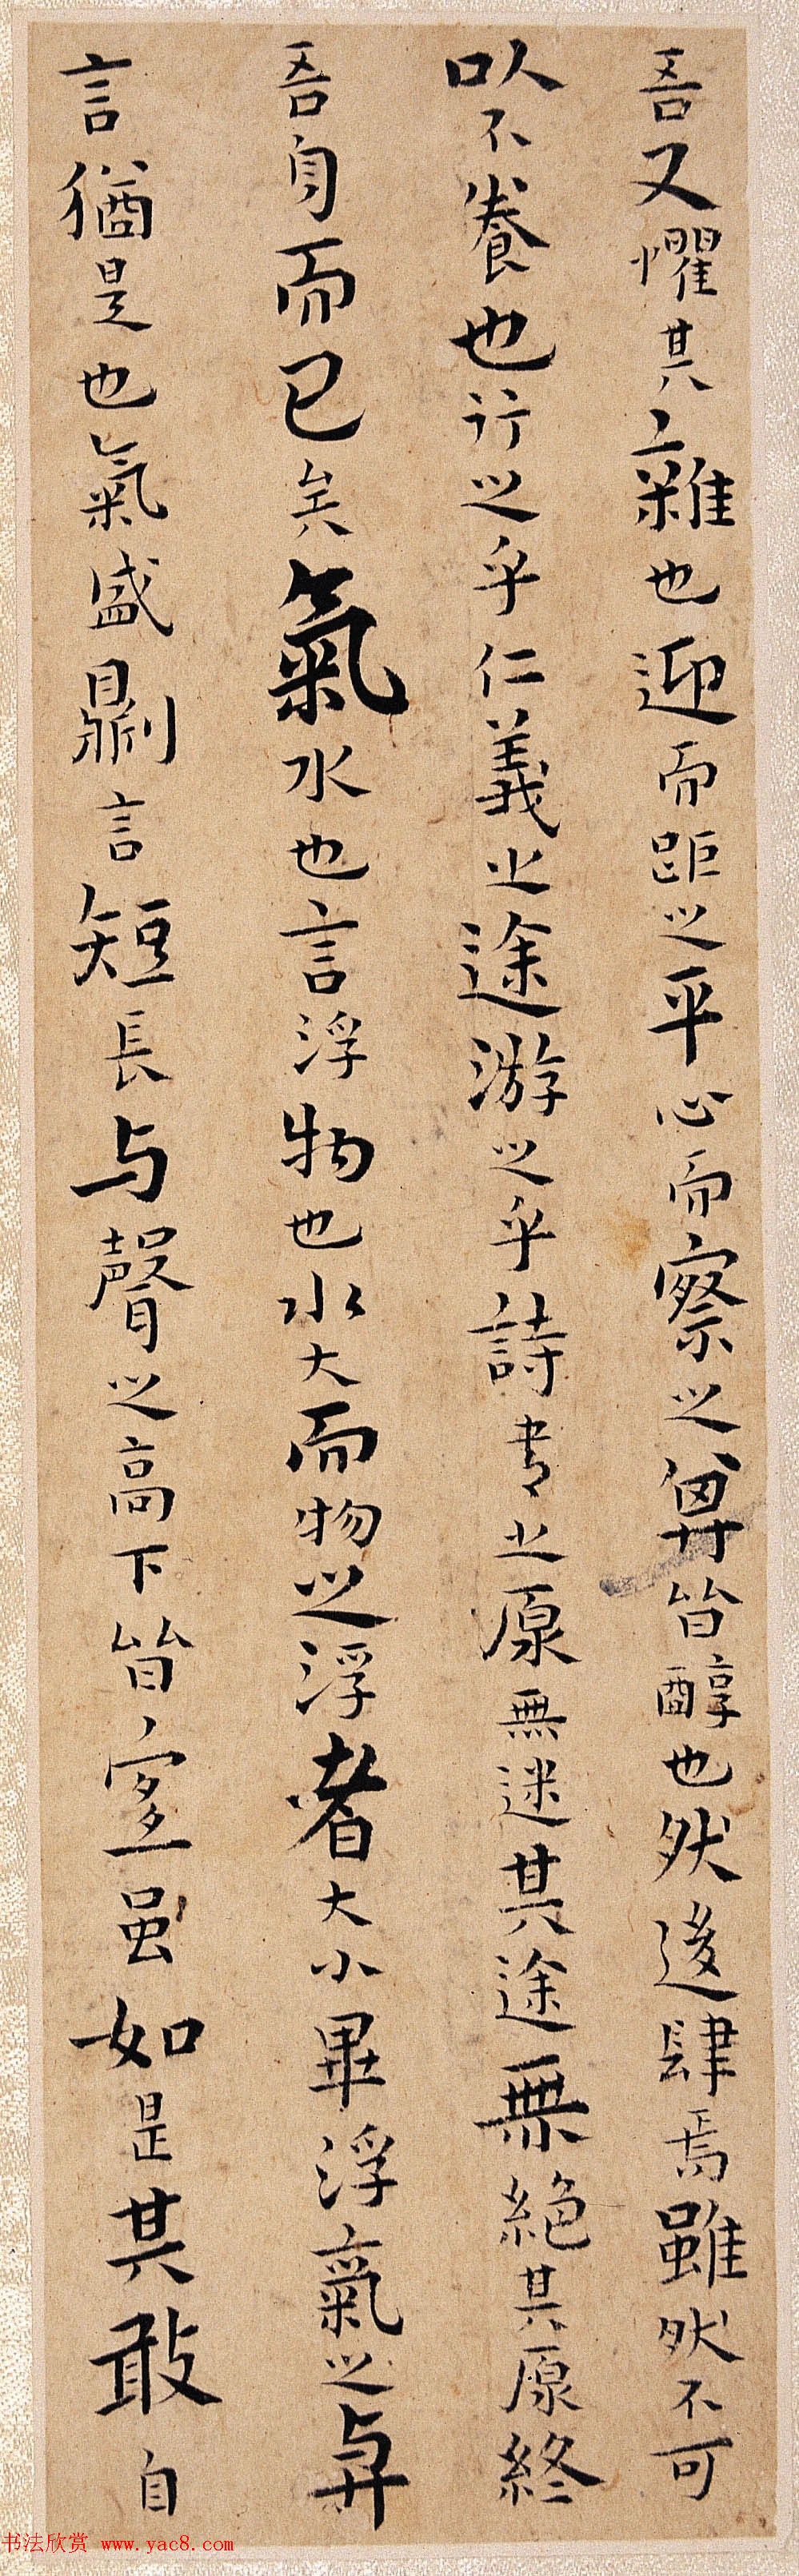 吾又懼其雜也迎而距之平心而察之其皆醇也然後肆焉雖然不可
以不養也行之乎仁義之途游之乎詩書之原無迷其途無絕其原終
吾身而已矣氣水也言浮物也水大而物之浮者大小畢浮氣之與
言猶是也氣盛則言短長与聲之高下皆宜虽如是其敢自
书法欣赏 www.yac8.com